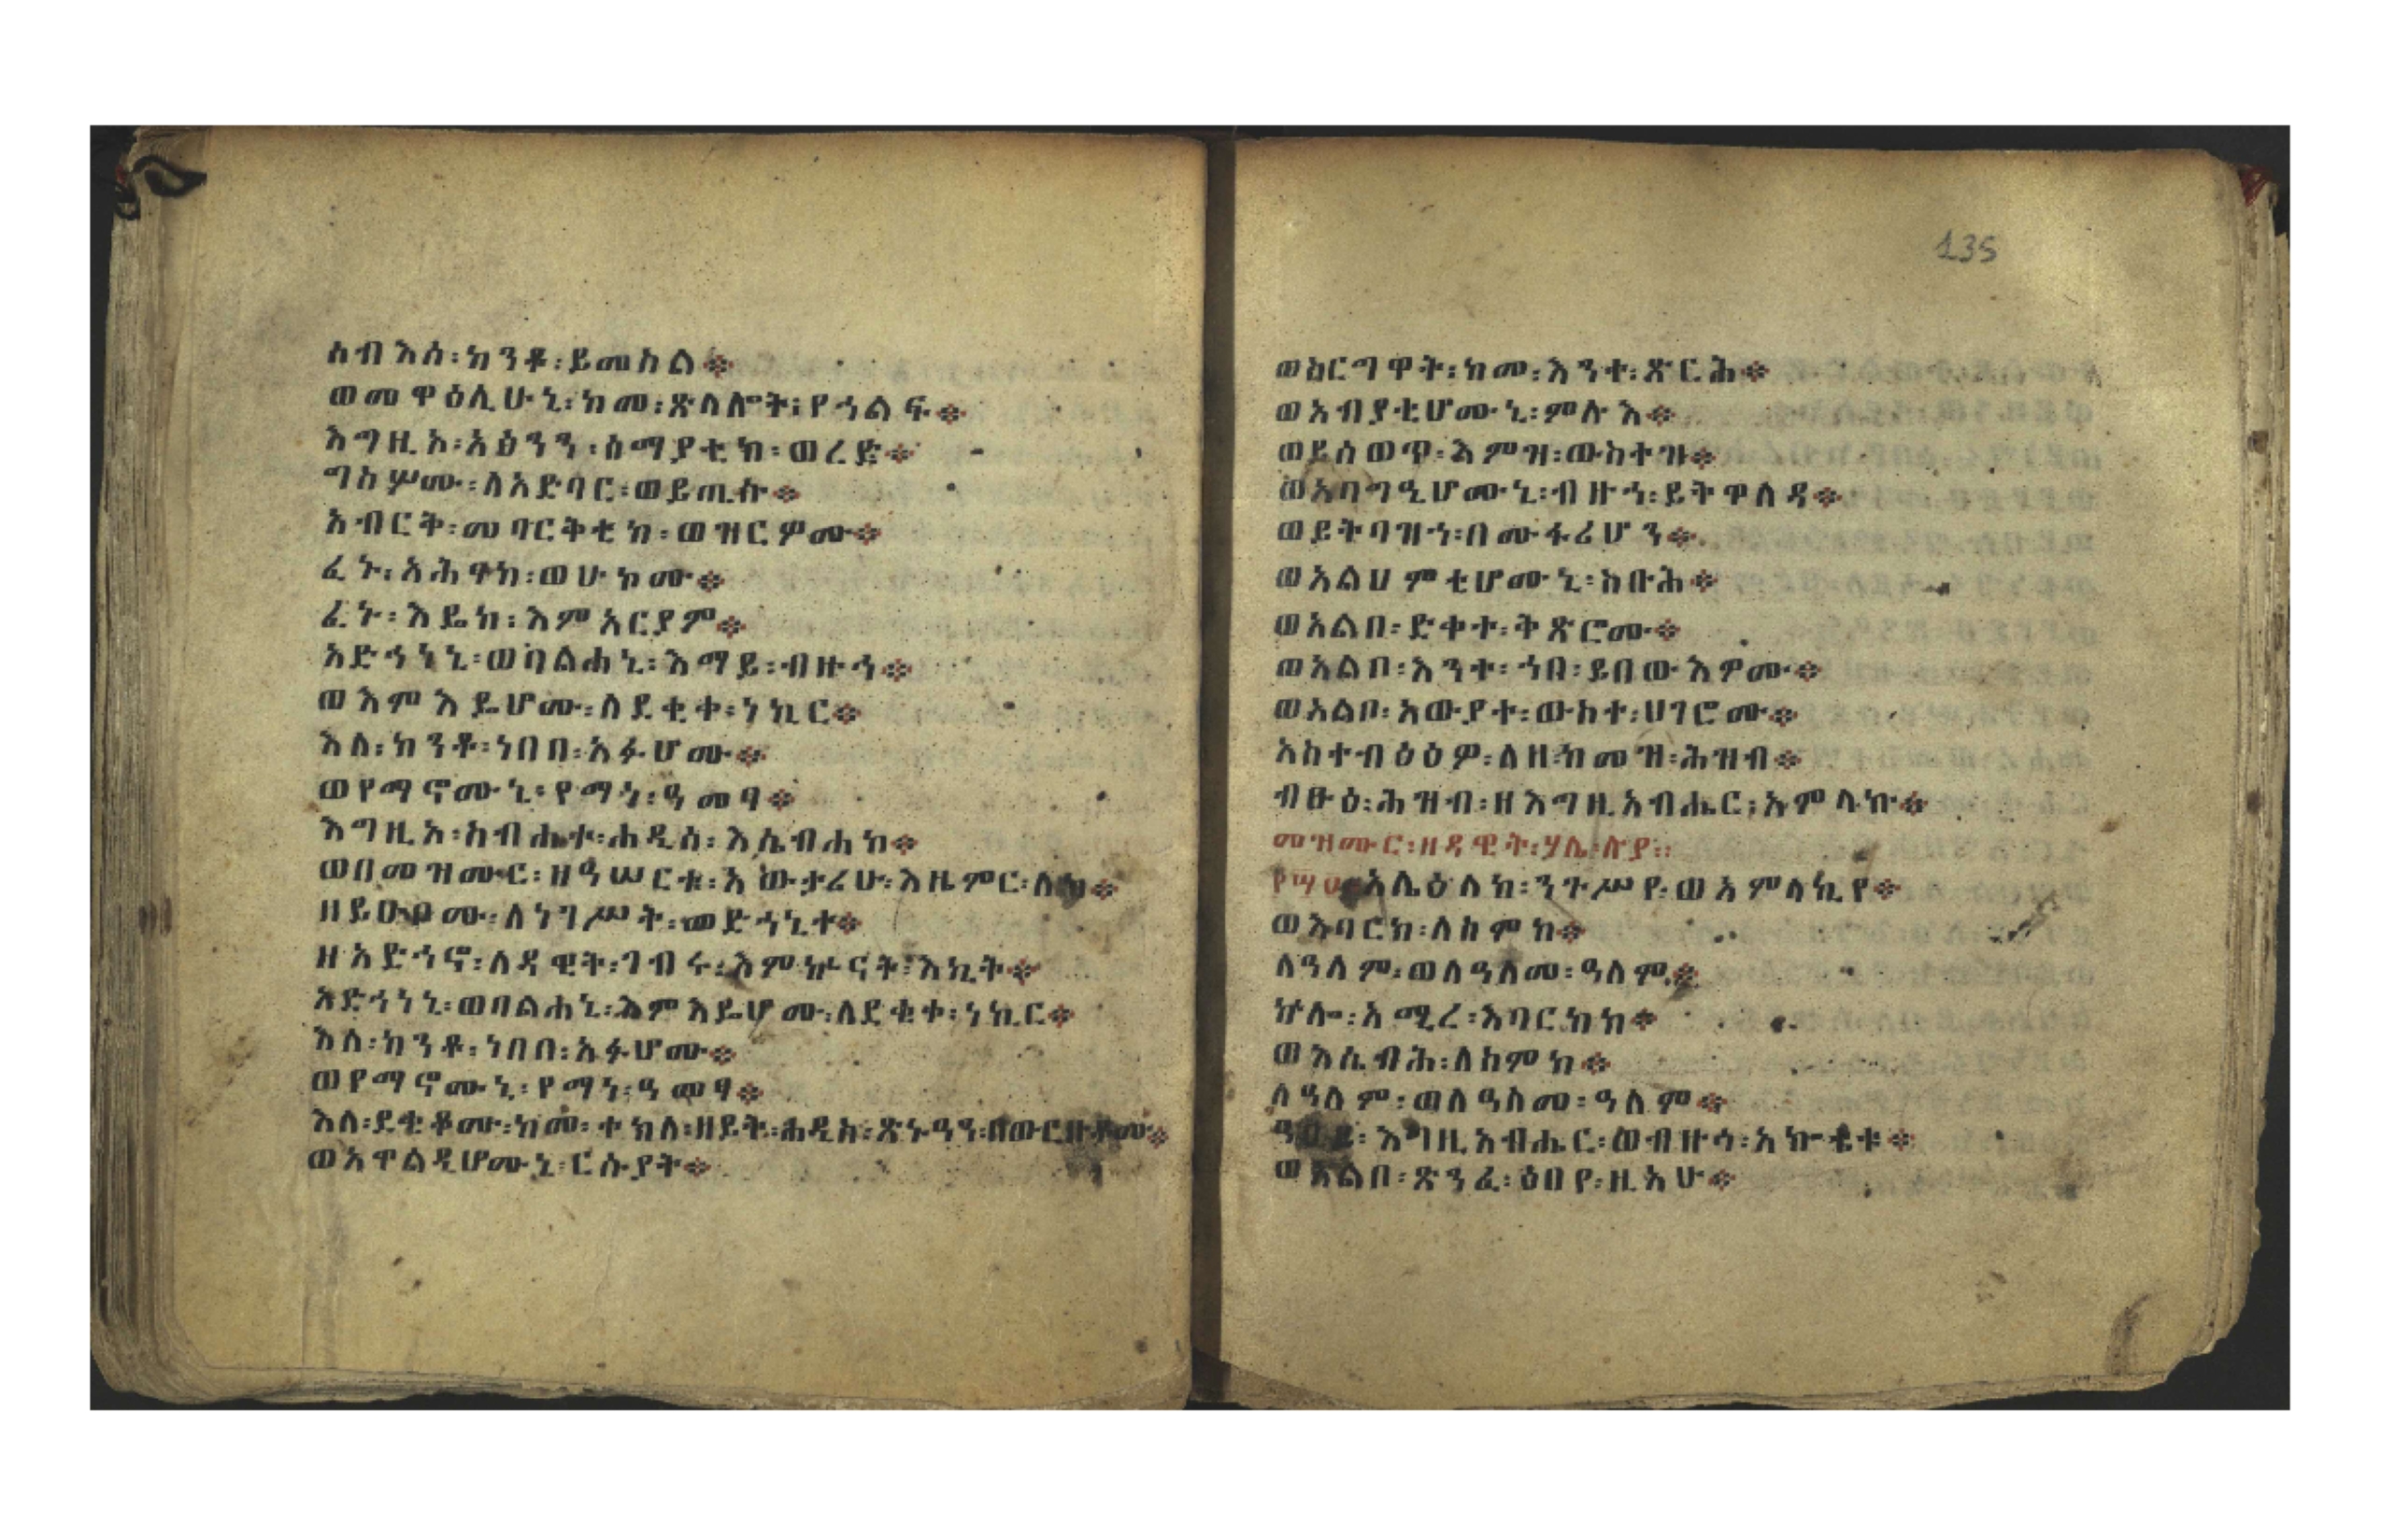 ሰብእሰ፡ከንቶ፡ይመስል፨
ወመዋዕሊሁኒ፡ከመ፡ጽላሎት፡የኀልፍ፨
እግዚኦ፡አፅንን፡ሰማያቲከ፡ወረድ፨
ግስሦሙ፡ለአድባር፡ወይጢሱ፨
አብርቅ፡መባርቅቲከ፡ወዝርዎሙ፨
ፈኑ፡አሕፃከ፡ወሁኮሙ፨
ፈኑ፡እዴከ፡እምአርያም፨
አድኅነኒ፡ወባልሐኒ፡እማይ፡ብዙኅ፨
ወእምእዴሆሙ፡ለደቂቀ፡ነኪር፨
እለ፡ከንቶ፡ነበበ፡አፉሆሙ፨
ወየማኖሙኒ፡የማነ፡ዓመፃ፨
እግዚኦ፡ስብሐተ፡ሐዲሰ፡እሴብሐከ፨
ወበመዝሙር፡ዘዓሠርቱ፡አውታሪሁ፡እዜምር፡ለከ፨
ዘይሁቦሙ፡ለነገሥት፡መድኀኒተ፨
ዘአድኀኖ፡ለዳዊት፡ገብሩ፡እምኵናት፡እኪት፨
አድኅነኒ፡ወባልሐኒ፡እምእዴሆሙ፡ለደቂቀ፡ነኪር፨
እለ፡ከንቶ፡ነበበ፡አፉሆሙ፨
ወየማኖሙኒ፡የማነ፡ዓመፃ፨
እለ፡ደቂቆሙ፡ከመ፡ተክለ፡ዘይት፡ሐዲስ፡ጽኑዓን፡በውርዙቶሙ፨
ወአዋልዲሆሙኒ፡ርሱያት፨
135
ወስርግዋት፡ከመ፡እንተ፡ጽርሕ፨
ወአብያቲሆሙኒ፡ምሉእ፨
ወይሰወጥ፡እምዝ፡ውስተዝ፨
ወአባግዒሆሙኒ፡ብዙኅ፡ይትዋለዳ፨
ወይትባዝኀ፡በሙፋሪሆን፨
ወአልህምቲሆሙኒ፡ስቡሕ፨
ወአልቦ፡ድቀተ፡ትጽሮሙ፨
ወአልቦ፡እንተ፡ኀበ፡ይበውእዎሙ፨
ወአልቦ፡አውያተ፡ውስተ፡ሀገሮሙ፨
አስተብዕዕዎ፡ለዘ፡ከመዝ፡ሕዝብ፨
ብፁዕ፡ሕዝብ፡ዘእግዚአብሔር፡አምላኩ፨
መዝሙር፡ዘዳዊት፡ሃሌ፡ሉያ።
አሌዕለከ፡ንጉሥየ፡ወአምላኪየ፨
ወእባርክ፡ለስምከ፨
ለዓለም፡ወለዓለመ፡ዓለም፨
ኵሎ፡አሚረ፡እባርከከ፨
ወእሴብሕ፡ለስምከ፨
ለዓለም፡ወለዓለመ፡ዓለም፨
ዓቢይ፡እግዚአብሔር፡ወብዙኅ፡አኰቴቱ፨
ወአልቦ፡ጽንፈ፡ዕበየ፡ዚአሁ፨